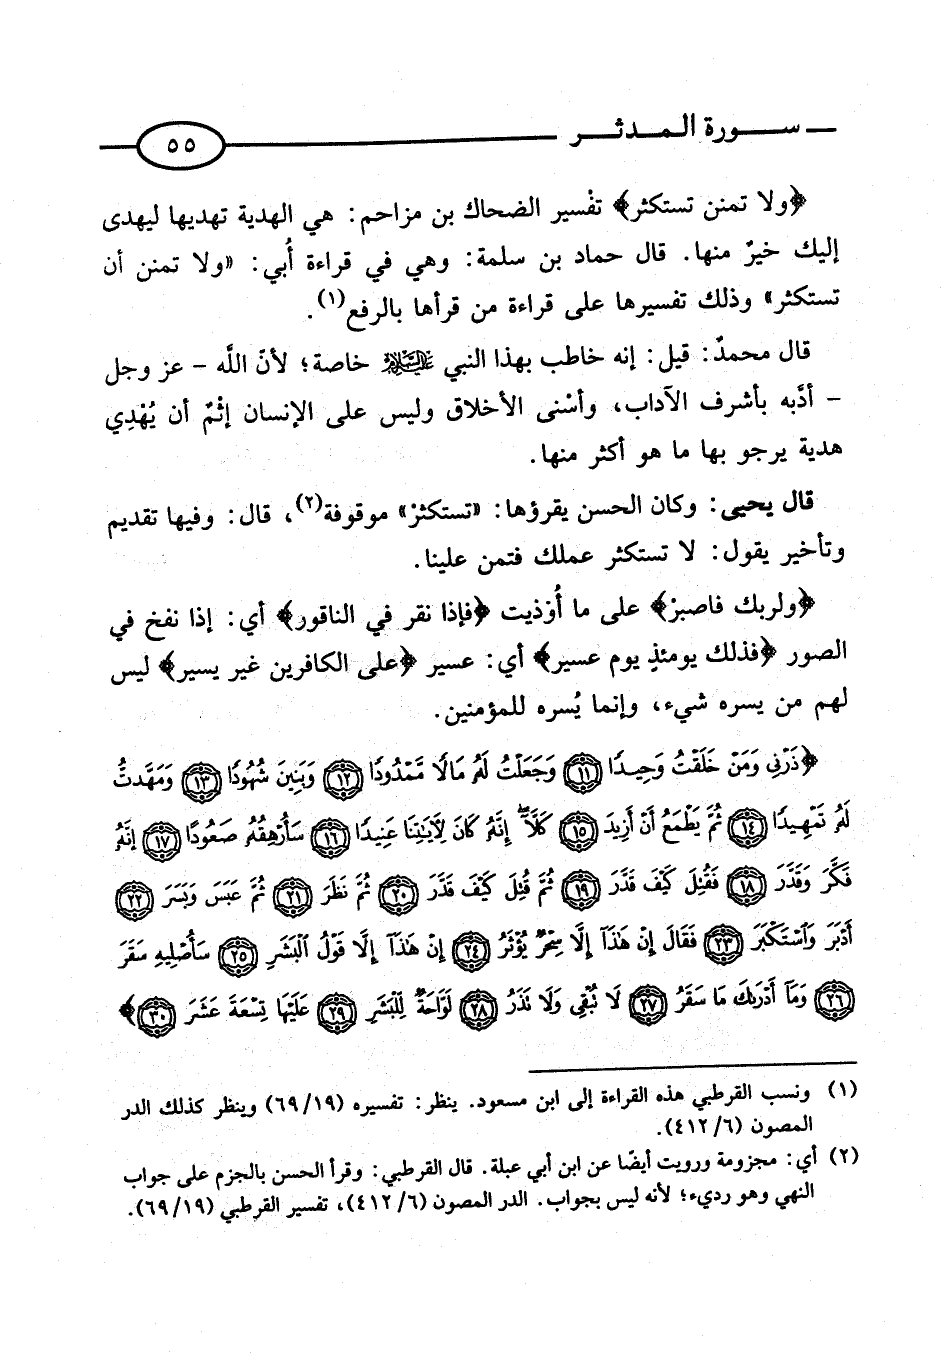 سورة المدثر
٥٥
﴿ولا تمنن تستكثر﴾ تفْسير الضحاك بن مزاحم: هي الهدية تهديها ليهدى
إليك خيرٌ منها. قال حماد بن سلمة: وهي في قراءة أُبي: «ولا تمنن أن
تستكثر» وذلك تفسيرها على قراءة من قرأها بالرفع(١).
قال محمدٌ: قيل: إنه خاطب بهذا النبي ﷺ خاصة؛ لأنَّ اللَّه – عز وجل
– أدَّبه بأشرف الآداب، وأسْنى الأخلاق وليس على الإنسان إثْمٌ أن يُهْدِي
هدية يرجو بها ما هو أكثر منها.
قال يحيى: وكان الحسن يقرؤها: «تستكثرْ» موقوفة(٢)، قال: وفيها تقديم
وتأخير يقول: لا تستكثر عملك فتمن علينا.
﴿ولربك فاصبرْ﴾ على ما أُوْذيت ﴿فإذا نقر في الناقور﴾ أي: إذا نفخ في
الصور ﴿فذلك يومئذٍ يوم عسير﴾ أي: عسير ﴿على الكافرين غير يسير﴾ ليس
لهم من يسره شيء، وإنما يُسره للمؤمنين.
﴿ذَرْنِي وَمَنْ خَلَقْتُ وَحِيدًا ١١ وَجَعَلْتُ لَهُ مَالًا مَّمْدُودًا ١٢ وَبَنِينَ شُهُودًا ١٣ وَمَهَّدتُّ
لَهُ تَمْهِيدًا ١٤ ثُمَّ يَطْمَعُ أَنْ أَزِيدَ ١٥ كَلَّا إِنَّهُ كَانَ لِآيَاتِنَا عَنِيدًا ١٦ سَأُرْهِقُهُ صَعُودًا ١٧ إِنَّهُ
فَكَّرَ وَقَدَّرَ ١٨ فَقُتِلَ كَيْفَ قَدَّرَ ١٩ ثُمَّ قُتِلَ كَيْفَ قَدَّرَ ٢٠ ثُمَّ نَظَرَ ٢١ ثُمَّ عَبَسَ وَبَسَرَ ٢٢
أَدْبَرَ وَاسْتَكْبَرَ ٢٣ فَقَالَ إِنْ هَذَا إِلَّا سِحْرٌ يُؤْثَرُ ٢٤ إِنْ هَذَا إِلَّا قَوْلُ الْبَشَرِ ٢٥ سَأُصْلِيهِ سَقَرَ
٢٦ وَمَا أَدْرَاكَ مَا سَقَرُ ٢٧ لَا تُبْقِي وَلَا تَذَرُ ٢٨ لَوَّاحَةٌ لِّلْبَشَرِ ٢٩ عَلَيْهَا تِسْعَةَ عَشَرَ ٣٠﴾
(١) ونسب القرطبي هذه القراءة إلى ابن مسعود. ينظر: تفسيره (٦٩/١٩) وينظر كذلك الدر
المصون (٤١٢/٦).
(٢) أي: مجزومة ورويت أيضًا عن ابن أبي عبلة. قال القرطبي: وقرأ الحسن بالجزم على جواب
النهي وهو رديء؛ لأنه ليس بجواب. الدر المصون (٤١٢/٦)، تفسير القرطبي (٦٩/١٩).